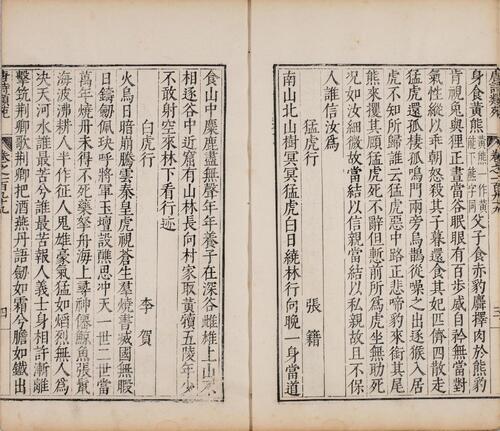 身食黃熊熊一作黃龍下能字同父子食赤豹麛擇肉於熊豹
肯視兔與狸正晝當谷眠眼有百步威自矜無當對
氣性縱以乖朝怒殺其子暮還食其妃匹儕四散走
猛虎還孤棲狐鳴門兩旁烏鵲從噪之出逐猴入居
虎不知所歸誰云猛虎惡中路正悲啼豹來銜其尾
熊來攫其頤猛虎死不辭但慚前所爲虎坐無助死
況如汝細微故當結以信親當結以私親故且不保
人誰信汝爲
猛虎行 張籍
南山北山樹冥冥猛虎白日繞林行向晚一身當道
食山中麋鹿盡無聲年年養子在深谷雌雄上山不
相逐谷中近窟有山林長向村家取黃犢五陵年少
不敢射空來林下看行迹
白虎行 李賀
火烏日暗崩騰雲秦皇虎視蒼生羣燒書滅國無暇
日鑄劒佩玦呼將軍玉壇設醮思冲天一世二世當
萬年燒丹未得不死藥拏舟海上尋神僊鯨魚張鬣
海波沸耕人半作征人鬼雄豪氣猛如熖烈無人爲
決天河水誰最苦兮誰最苦報人義士身相許漸離
擊筑荆卿歌荆卿把酒燕丹語劒如霜兮膽如鐵出
四